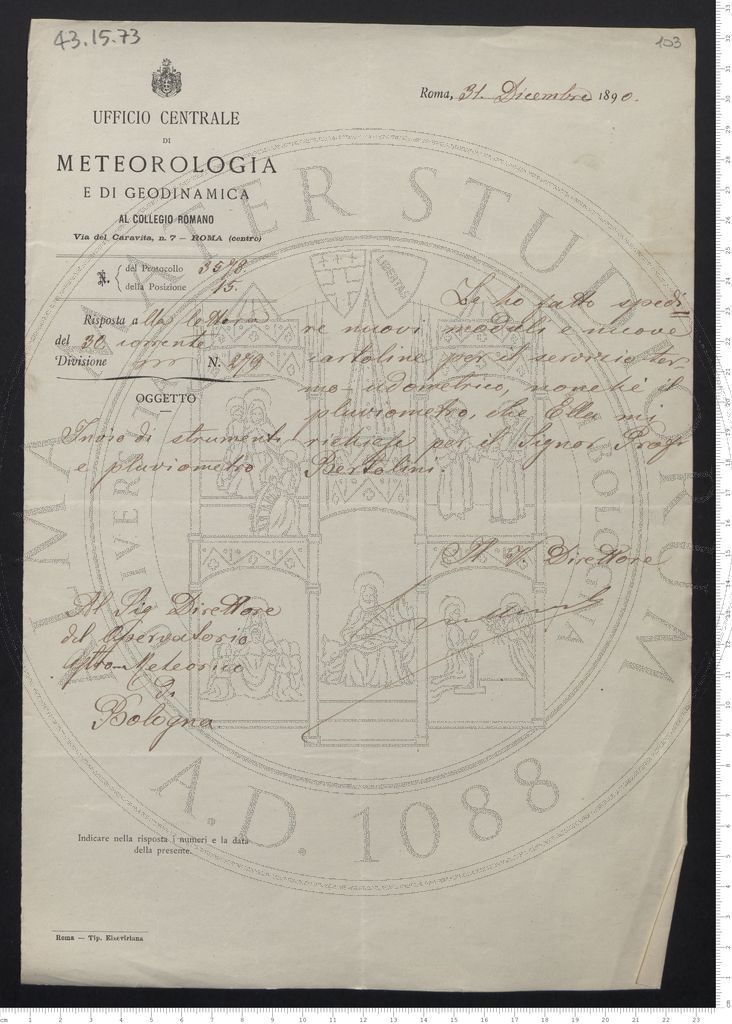 43.15.73
103
UFFICIO CENTRALE
DI
METEOROLOGIA
E DI GEODINAMICA
AL COLLEGIO ROMANO
Via del Caravita, n. 7 — ROMA (centro)
Roma, 31 Dicembre 1890.
N. del Protocollo 3578
della Posizione 15.
Risposta alla lettera
del 30 corrente
Divisione N. 279
OGGETTO
Invio di strumenti
e pluviometro
Le ho fatto spedi
re nuovi moduli e nuove
cartoline per il servizio ter-
mo-udometrico, nonchè il
pluviometro, che Ella mi
richiese per il Signor Prof
Bertolini.
Il Direttore
Al Sig Direttore
del Osservatorio
Astro-Meteorico
di
Bologna
Indicare nella risposta i numeri e la data
della presente.
Roma — Tip. Elzeviriana
ALMA MATER STUDIORUM
A.D. 1088
LIBERTAS